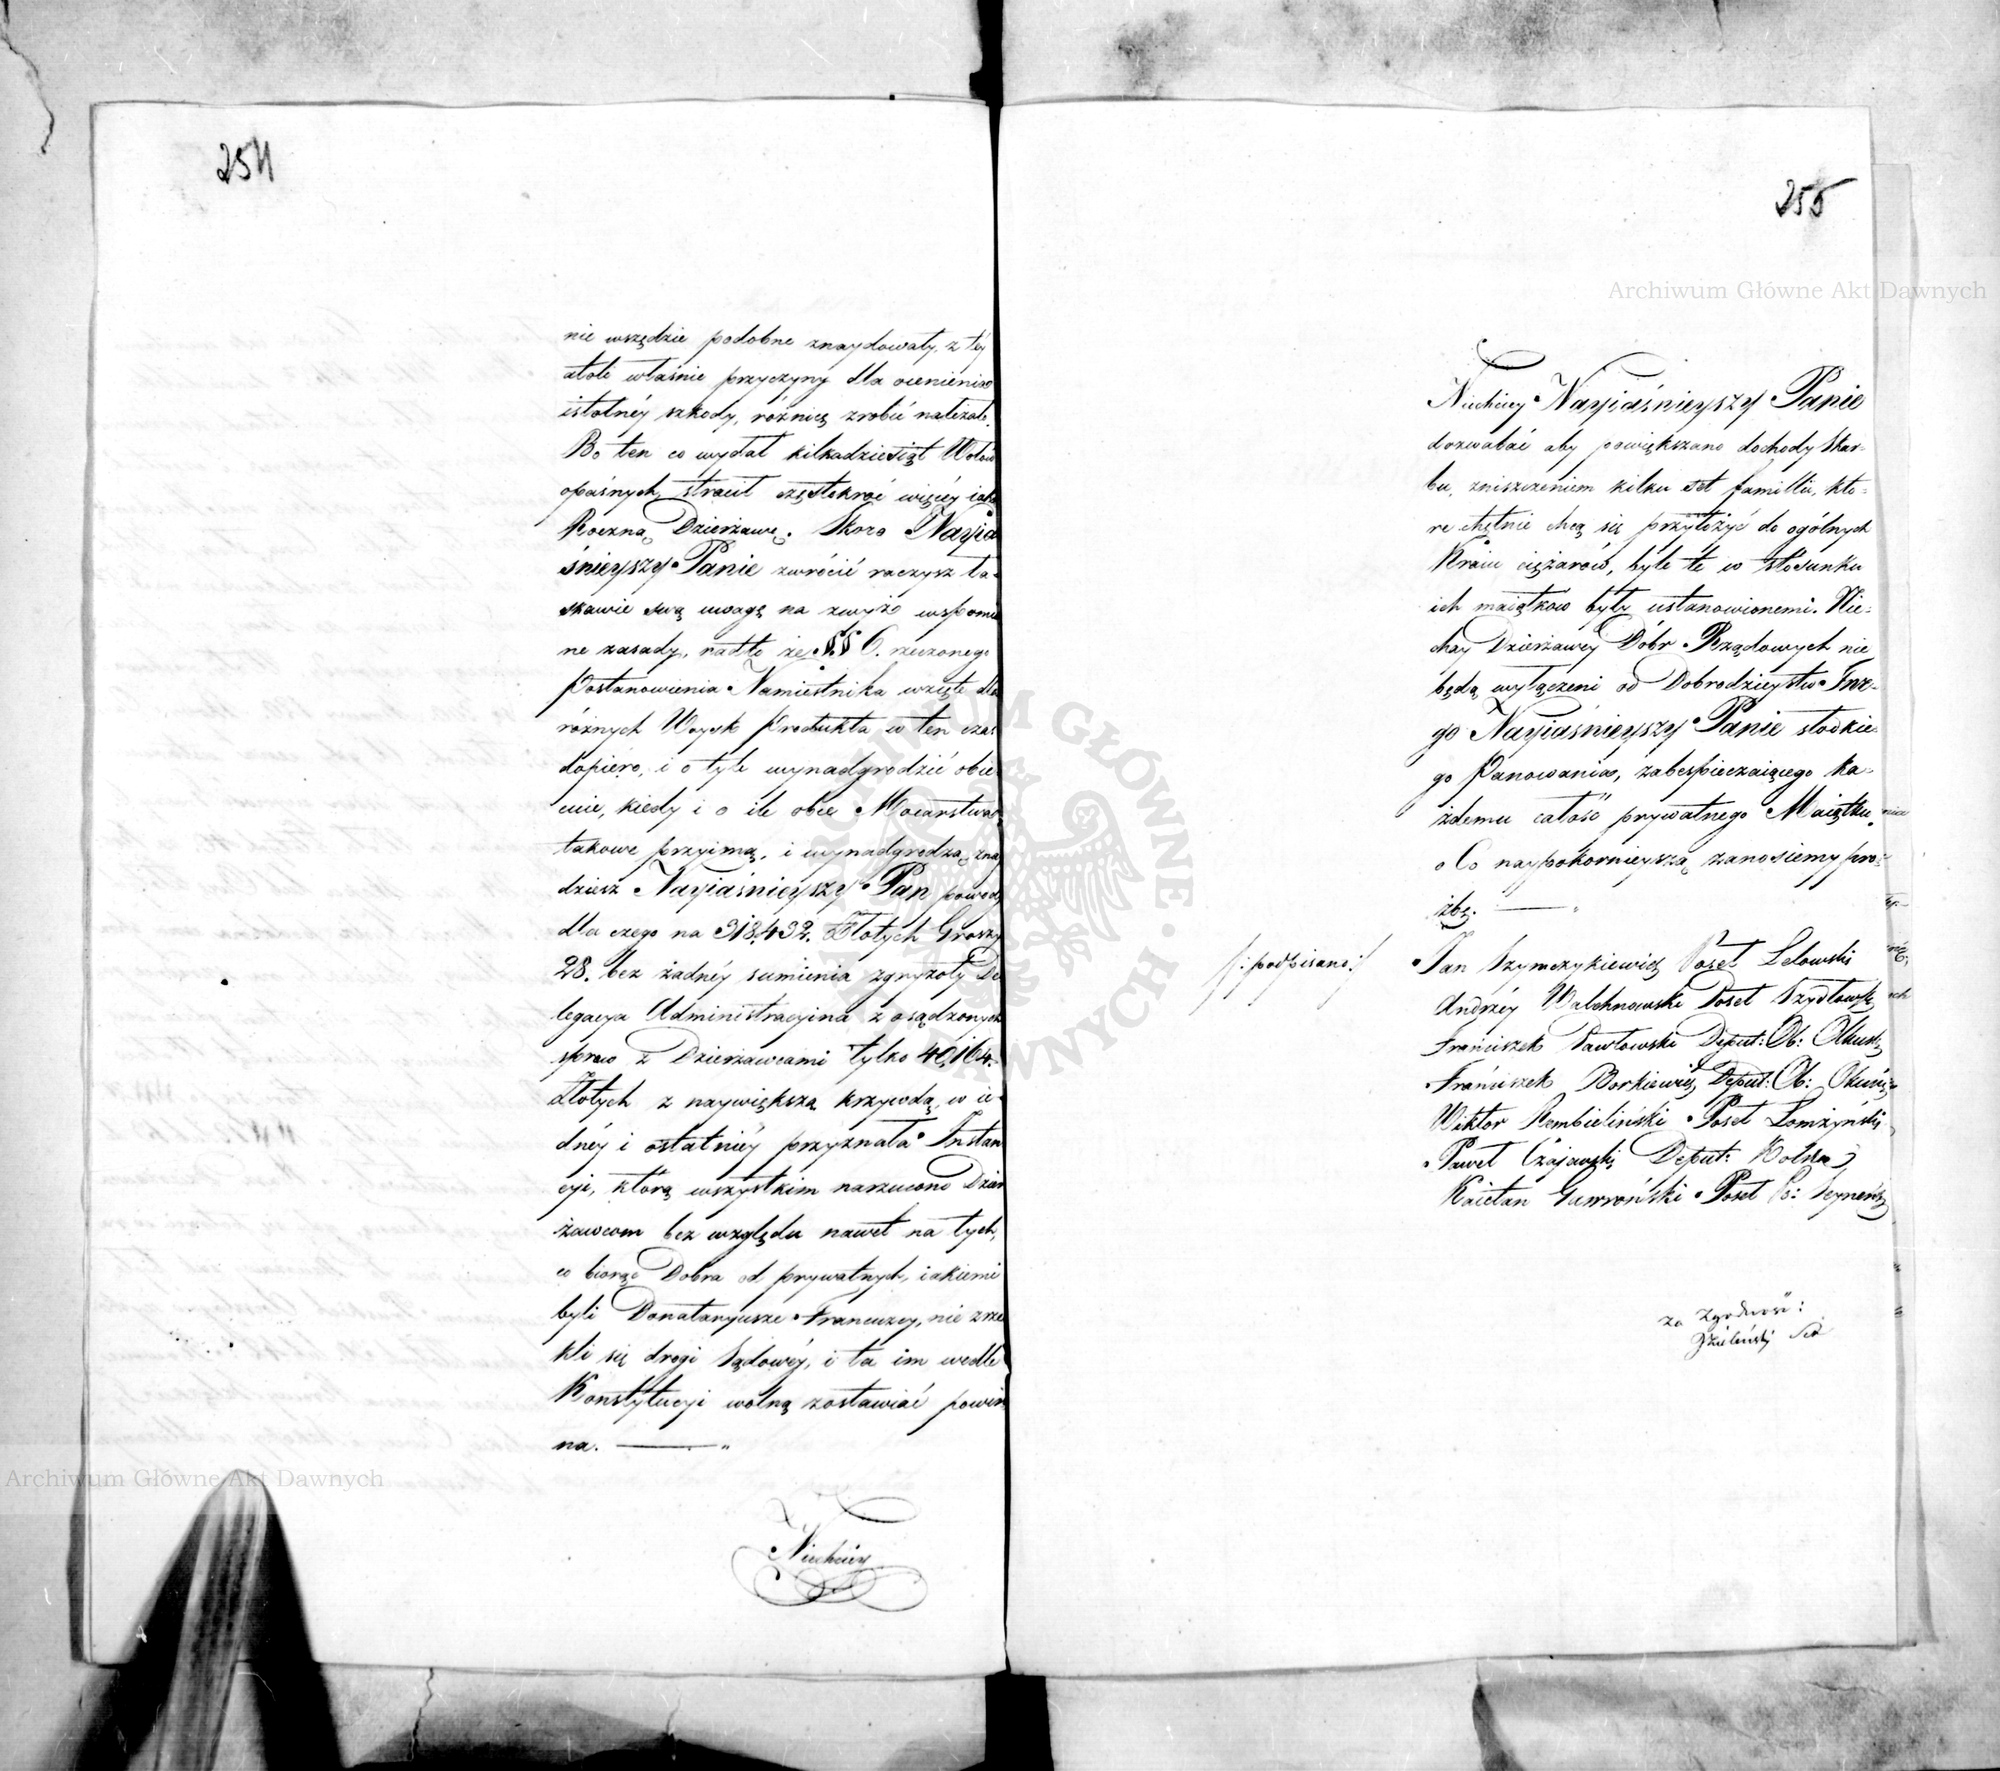 254
nie wszędzie podobne znaydowały, z téy
atoli właśnie przyczyny dla ocenienia
istotnéy szkody, różnicę zrobić należało.
Bo ten co wydał kilkadziesiąt Wołów
opaśnych, stracił częstokroć więcéy iak
Roczną Dzierżawę. Skoro Nayia
śnieyszy Panie zwrócić raczysz ła-
skawie swą uwagę na zwyżo wspomnio
ne zasady, nadto że §§ 6. rzeczonego
Postanowienia Namiestnika wzięte dla
różnych Woysk Produkta w ten czas
dopiéro, i o tyle wynadgrodzić obie
cuie, kiedy i o ile obce Mocarstwa
takowe przyimą, i wynadgrodzą, znay
dziesz Nayiaśnieyszy Pan powody
dla czego na 318,432. Złotych Groszy
28. bez żadnéy sumienia zgryzoty De
legacya Administracyina z osądzonych
spraw z Dzierżawcami tylko 40,164.
Złotych z naywiększą krzywdą, w ie-
dnéy i ostatniéy przyznała Instan
cyi, którą wszystkim narzucono Dzier
żawcom bez względu nawet na tych,
co biorąc Dobra od prywatnych, iakiemi
byli Donataryusze Francuzcy, nie zrze
kli się drogi Sądowéy, i ta im wedle
Konstytucyi wolną zostawiać powin
na.
Niechciey
255
Niechciey Nayiaśnieyszy Panie
dozwalać aby powiększano dochody Skar-
bu, zniszczeniem kilku set familii, któ-
re chętnie chcą się przyłożyć do ogólnych
Kraiu ciężarów, byle te w stosunku
ich maiątków były ustanowionemi. Nie-
chay Dzierżawcy Dóbr Rządowych nie
będą wyłączeni od Dobrodzieystw Twe-
go Nayiaśnieyszy Panie słodkie-
go Panowania, zabespieczaiącego ka-
żdemu całość prywatnego Maiątku.
o Co naypokornieyszą zanosiemy pro-
żbę.
/:podpisano:/
Jan Szymczykiewicz Poseł Lelowski
Andrzéy Walchnowski Poseł Szydłowsk
Franciszek Pawłowski Deput: Ob: Olkusk
Franciszek Borkiewicz Deput: Ob:
Wiktor Rembieliński Poseł Łomżyński
Paweł Czajewski Deput:
Kaietan Gawroński Poseł Po: Seyneńs
za Zgodność:
Archiwum Główne Akt Dawnych
Archiwum Główne Akt Dawnych
ARCHIWUM GŁÓWNE AKT DAWNYCH